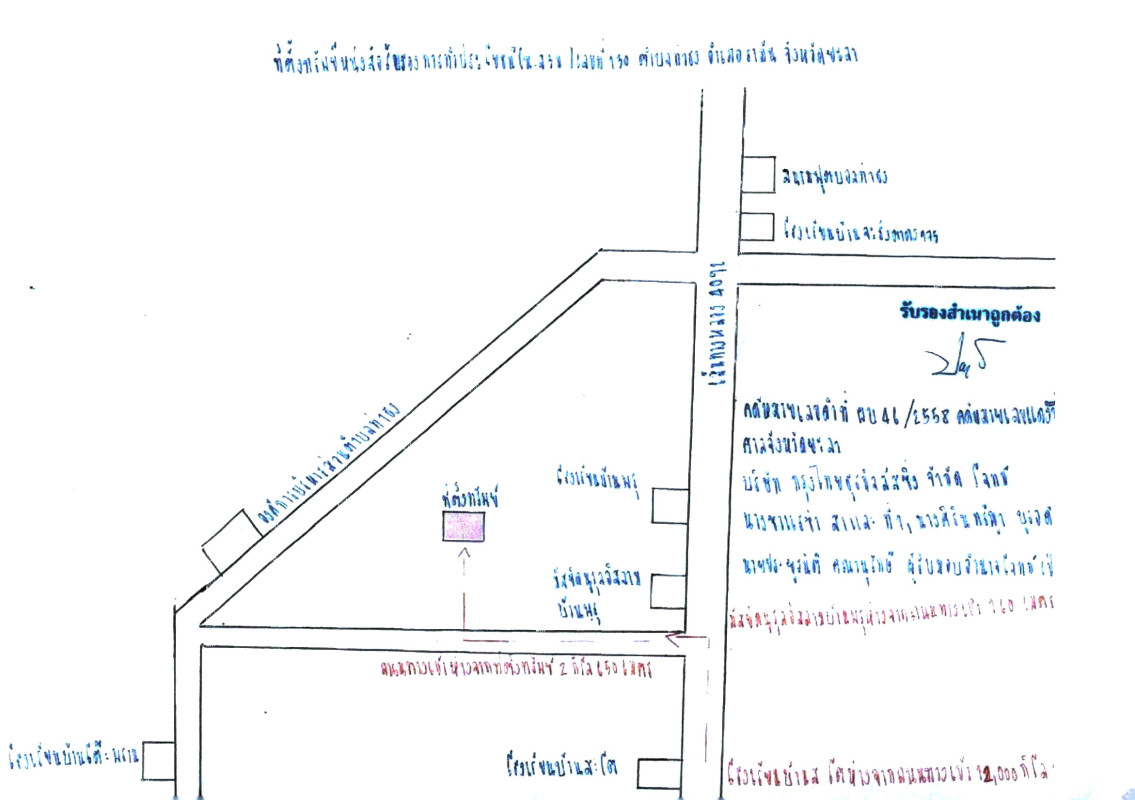 ที่ตั้งทรัพย์หนังสือรับรองการทำประโยชน์ใน เลขที่ 130 ตำบลท่าธง อำเภอรามัน จังหวัดยะลา
สนามฟุตบอลท่าธง
โรงเรียนบ้านจะรังตาดง
เส้นทางหลวง
รับรองสำเนาถูกต้อง
องค์การบริหารส่วนตำบลท่าธง
คดีหมายเลขดำที่ ผบ 46/2558 คดีหมายเลขแดงที่
ศาลจังหวัดยะลา
บริษัท กรุงไทยธุรกิจลีสซิ่ง จำกัด โจทก์
โรงเรียนบ้านพรุ
ที่ตั้งทรัพย์
มัสยิดนูรุลอิสลาม
บ้านพรุ
ผู้รับมอบอำนาจโจทก์
มัสยิดนูรุลอิสลามบ้านพรุห่างจากถนนทางเข้า 160 เมตร
ถนนทางเข้าห่างจากที่ตั้งทรัพย์ 2 กิโล 650 เมตร
โรงเรียนบ้านโต๊ะพราน
โรงเรียนบ้านสะโต
โรงเรียนบ้านสะโตห่างจากถนนทางเข้า 12,000 กิโล